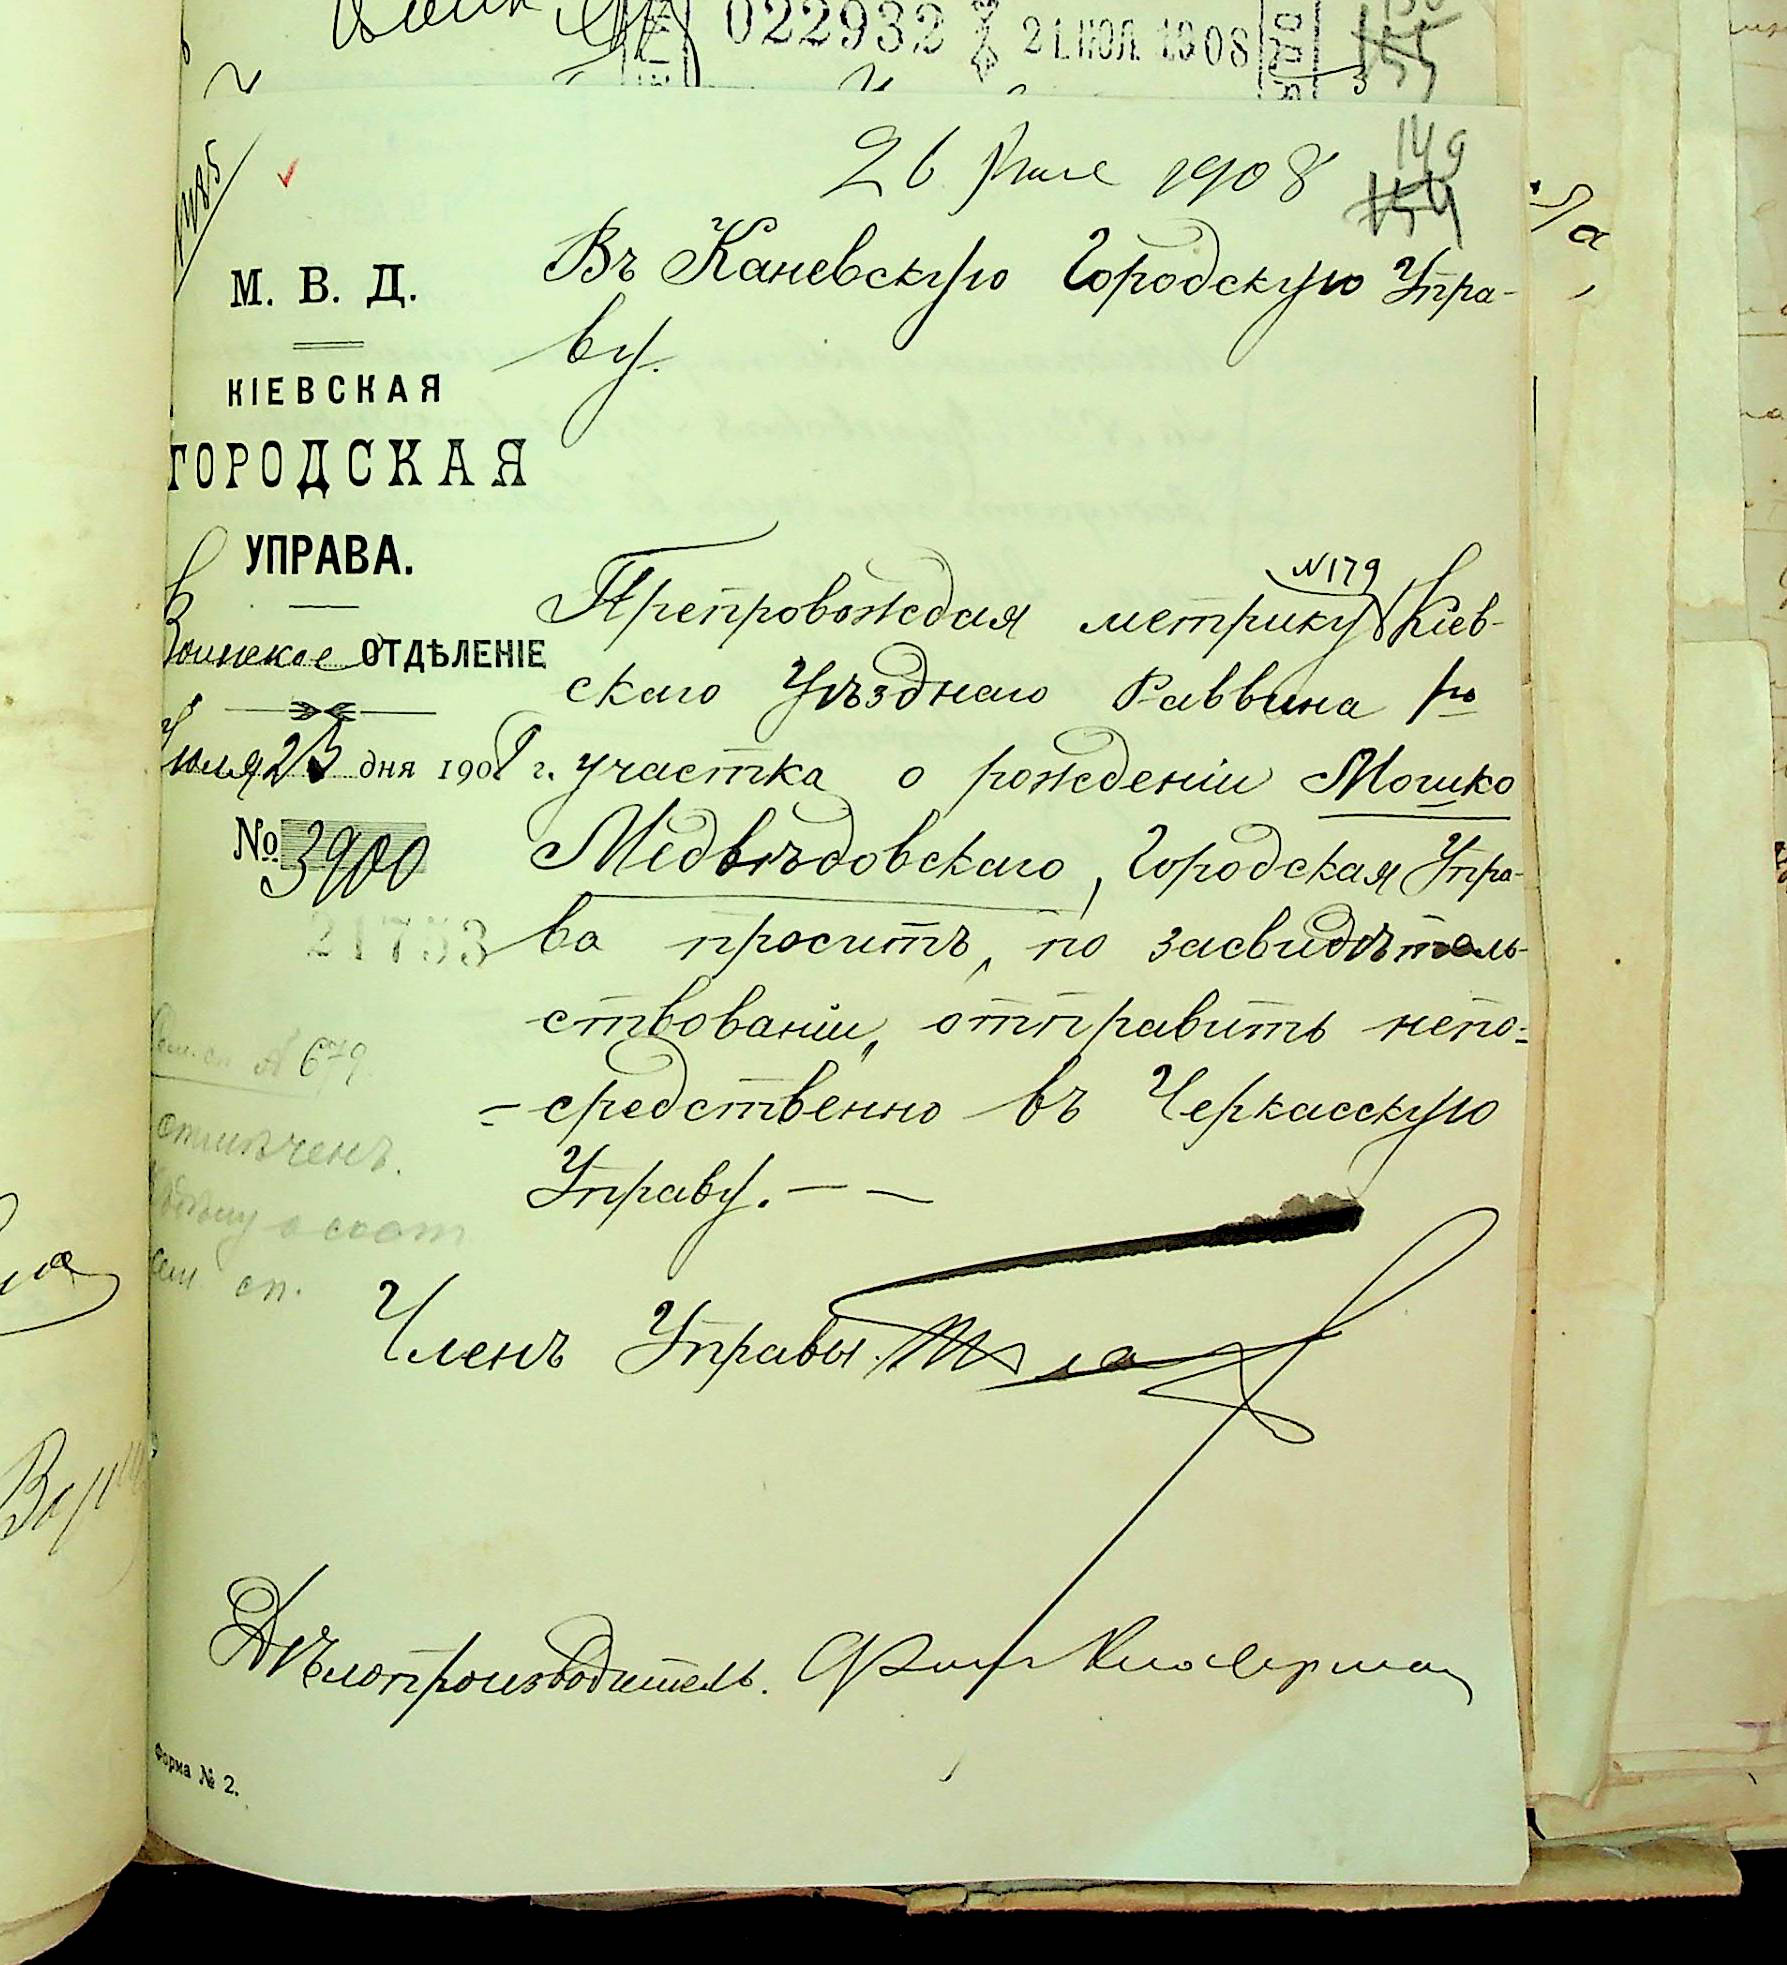 022932 21 ІЮЛ 1908
149
154
26 Іюля 1908
1485
М. В. Д.
КІЕВСКАЯ
ГОРОДСКАЯ
УПРАВА.
Воинское ОТДѢЛЕНІЕ
Іюля 23 дня 1908 г.
№ 3900
21753
№ 679
отмѣченъ.
сем. сп.
Въ Каневскую Городскую Упра-
ву.
Препровождая метрику №179 Кіев-
скаго Уѣзднаго Раввина
участка о рожденіи Мошко
Медвѣдовскаго, Городская Упра-
ва проситъ, по засвидѣтель-
ствованіи, отправить непо-
средственно въ Черкасскую
Управу.
Членъ Управы
Дѣлопроизводитель.
Форма № 2.